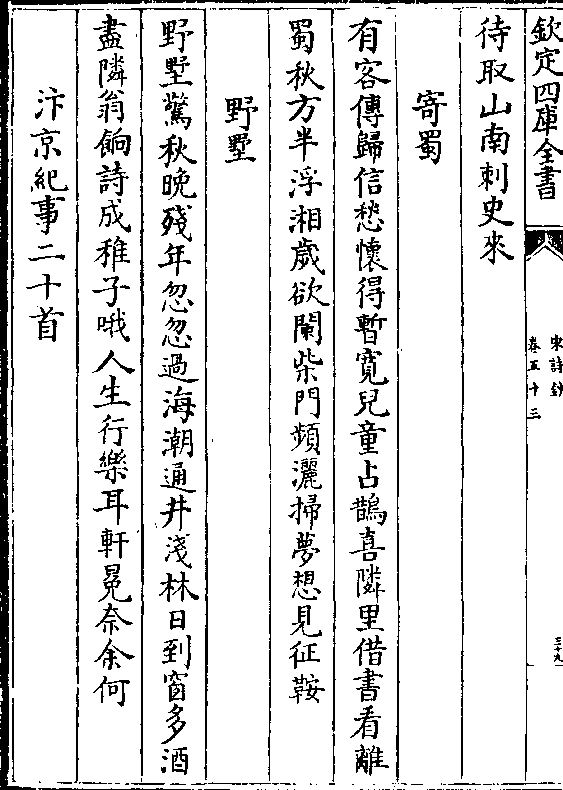 欽定四庫全書
宋詩鈔
卷五十三
三十九
待取山南刺史來
寄蜀
有客傳歸信愁懷得暫寛兒童占鵲喜隣里借書看離
蜀秋方半浮湘歲欲闌柴門頻灑掃夢想見征鞍
野墅
野墅驚秋晚殘年忽忽過海潮通井淺林日到窗多酒
盡隣翁餉詩成稚子哦人生行樂耳軒冕奈余何
汴京紀事二十首